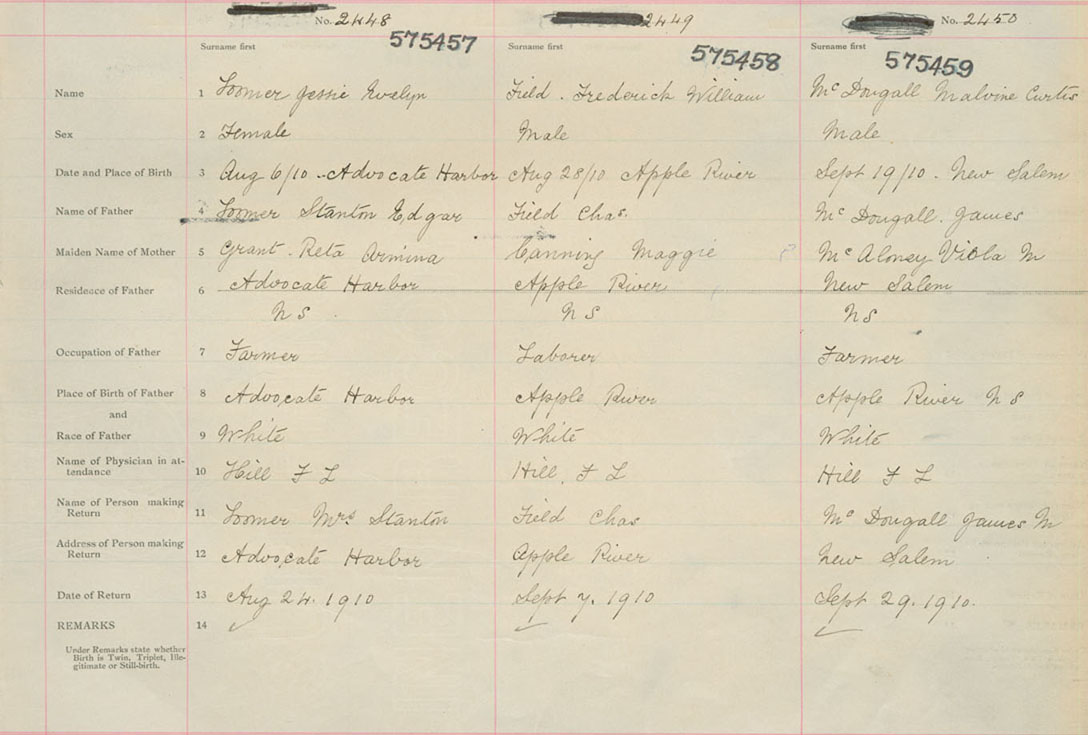 No. 2448 2449 No. 2450
575457 575458 575459
Surname first Surname first Surname first
Name 1 Loomer Jessie Evelyn Field. Frederick William McDougall Malvine Curtis
Sex 2 Female Male Male
Date and Place of Birth 3 Aug 6/10 - Advocate Harbor Aug 28/10 Apple River Sept 19/10. New Salem
Name of Father 4 Loomer Stanton Edgar Field Chas. McDougall. James
Maiden Name of Mother 5 Grant. Reta Armina Canning Maggie McAloney Viola M
Residence of Father 6 Advocate Harbor Apple River New Salem
N S N S N S
Occupation of Father 7 Farmer Laborer Farmer
Place of Birth of Father 8 Advocate Harbor Apple River Apple River N S
and
Race of Father 9 White White White
Name of Physician in at-
tendance 10 Hill F L Hill, F L Hill F L
Name of Person making
Return 11 Loomer Mrs Stanton Field Chas McDougall James M
Address of Person making
Return 12 Advocate Harbor Apple River New Salem
Date of Return 13 Aug 24. 1910 Sept 7. 1910 Sept 29. 1910.
REMARKS 14
Under Remarks state whether
Birth is Twin, Triplet, Ille-
gitimate or Still-birth.